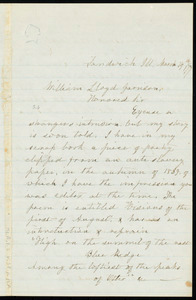 Sandwich Ill. March 19
William Lloyd Garrison,
Honored Sir
Excuse a
strangers intrusion but my story
is soon told. I have in my
scrap book a piece of poetry
clipped from an anti slavery
paper, in the autumn of 1849, of
which I have the impression you
was editor at the time. The
poem is entitled "Visions of the
first of August," & has an
introduction & refrain
"High on the summit of the
Blue Ridge
Among the loftiest of the peaks
of Otter" &c